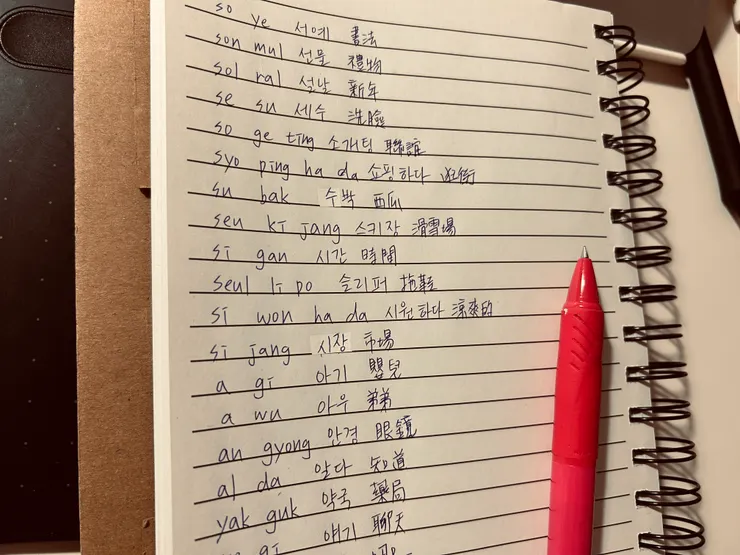 so ye 서예 書法
son mul 선물 禮物
sol ral 설날 新年
se su 세수 洗臉
so ge ting 소개팅 聯誼
syo ping ha da 쇼핑하다 逛街
su bak 수박 西瓜
seu ki jang 스키장 滑雪場
si gan 시간 時間
seul li po 슬리퍼 拖鞋
si won ha da 시원하다 涼爽的
si jang 시장 市場
a gi 아기 嬰兒
a wu 아우 弟弟
an gyong 안경 眼鏡
al da 알다 知道
yak guk 약국 藥局
gi 얘기 聊天